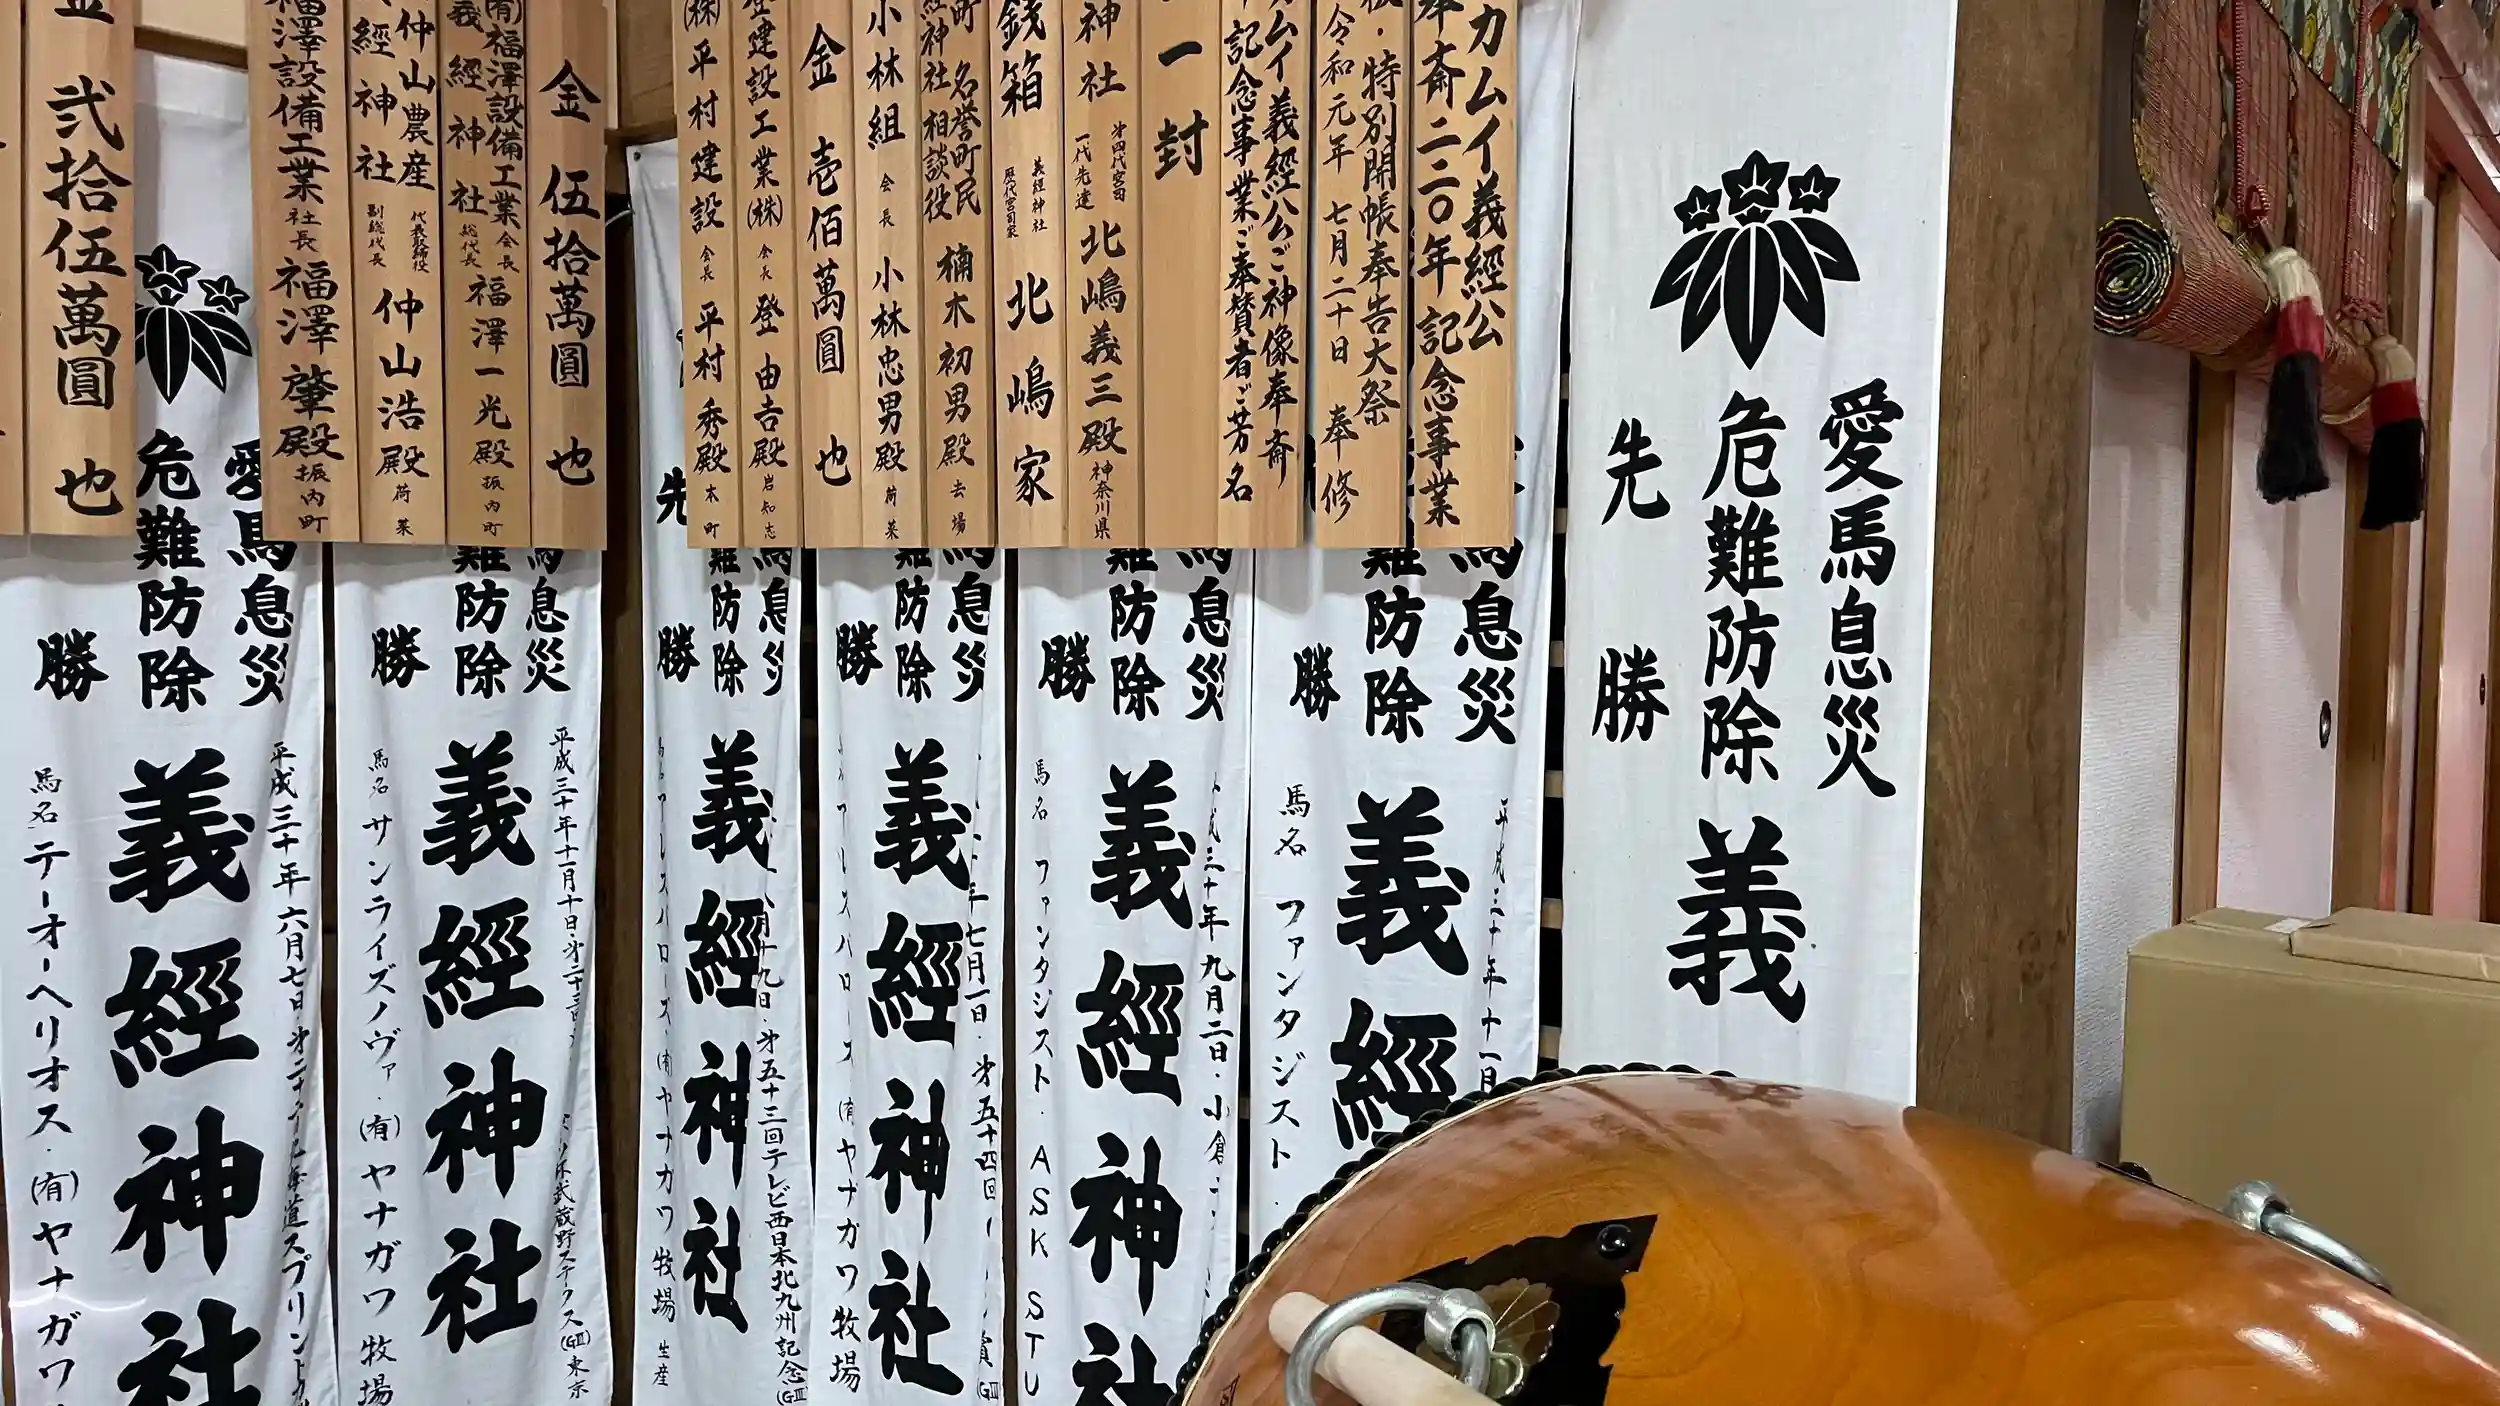 カムイ義經公
奉斎二二〇年記念事業
特別開帳奉告大祭
令和元年 七月二十日 奉修
ムイ義經公ご神像奉斎
記念事業ご奉賛者ご芳名
一封
神社
第四代宮司
一代先達
北嶋義三殿
神奈川県
銭箱
義經神社
歴代宮司家
北嶋家
町 名誉町民
經神社相談役
楠木初男殿
去場
小林組
会長
小林忠男殿
荷菜
金 壱佰萬圓 也
登建設工業(株)
会長
登由吉殿
岩知志
(株)平村建設
会長
平村秀殿
本町
金 伍拾萬圓 也
(有)福澤設備工業
会長
義經神社
総代長
福澤一光殿
振内町
仲山農産
代表取締役
經神社
副総代長
仲山浩殿
荷菜
福澤設備工業
社長
福澤肇殿
振内町
金 弐拾伍萬圓 也
愛馬息災
危難防除
先勝
義
馬息災
難防除
勝
義經
馬名 ファンタジスト
馬息災
難防除
勝
義經神社
平成三十年九月二日・小倉
馬名 ファンタジスト・ASK STU
馬息災
難防除
勝
義經神社
年七月一日・第五十四回
(有)ヤナガワ牧場
馬息災
難防除
先勝
義經神社
月十九日・第五十三回テレビ西日本北九州記念(GⅢ)
(有)ヤナガワ牧場 生産
馬息災
難防除
勝
義經神社
平成三十年十一月十日・第二十三
武蔵野ステークス(GⅢ)東京
馬名 サンライズノヴァ・(有)ヤナガワ牧場
愛馬息災
危難防除
勝
義經神社
平成三十年六月七日・第二十
北海道スプリント
馬名 テーオーヘリオス・(有)ヤナガワ